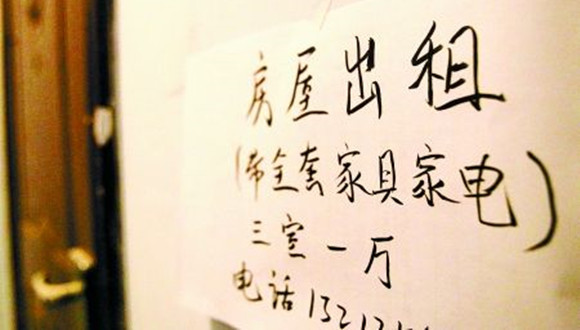 房屋出租
(带全套家具家电)
三室一厅
电话 1321